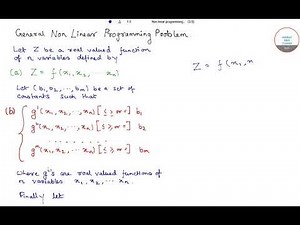 General Non Linear Programming Problem
Let Z be a real valued function
of n variables defined by
(a) Z = f(x₁, x₂, ... xₙ)
Z = f(x₁, x
Let (b₁, b₂, ..., bₘ) be a set of
constants such that
(b) { g¹(x₁, x₂, ..., xₙ) [≤ ≥ or =] b₁
g²(x₁, x₂, ..., xₙ) [≤ ≥ or =] b₂
. . . . . . . . .
gᵐ(x₁, x₂, ..., xₙ) [≤ ≥ or =] bₘ
where gⁱ's are real valued functions of
n variables x₁, x₂, ... xₙ.
Finally let